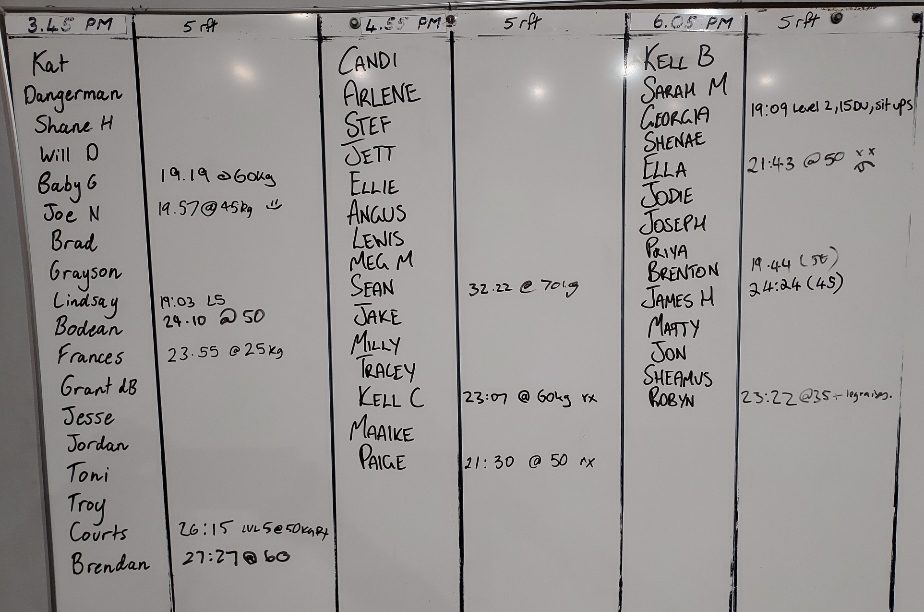 3.45 PM 5 rft
Kat
Dangerman
Shane H
Will D
Baby G 19.19 @60kg
Joe N 19.57@45kg
Brad
Grayson
Lindsay 19:03 L5
Bodean 24.10 @50
Frances 23.55 @25kg
Grant dB
Jesse
Jordan
Toni
Troy
Courts 26:15 LVL5@50kg Rx
Brendan 27:27@60
4.55 PM 5 rft
CANDI
ARLENE
STEF
JETT
ELLIE
ANGUS
LEWIS
MEG M
SEAN 32.22 @ 70kg
JAKE
MILLY
TRACEY
KELL C 23:07 @ 60kg rx
MAAIKE
PAIGE 21:30 @ 50 rx
6.05 PM 5 rft
KELL B
SARAH M
GEORGIA 19:09 Level 2, 15DU, sit ups
SHENAE
ELLA 21:43 @50 xx
JODIE
JOSEPH
PRIYA
BRENTON 19.44 (50)
JAMES H 24:24 (45)
MATTY
JON
SHEAMUS
ROBYN 23:22 @35 - leg raises.